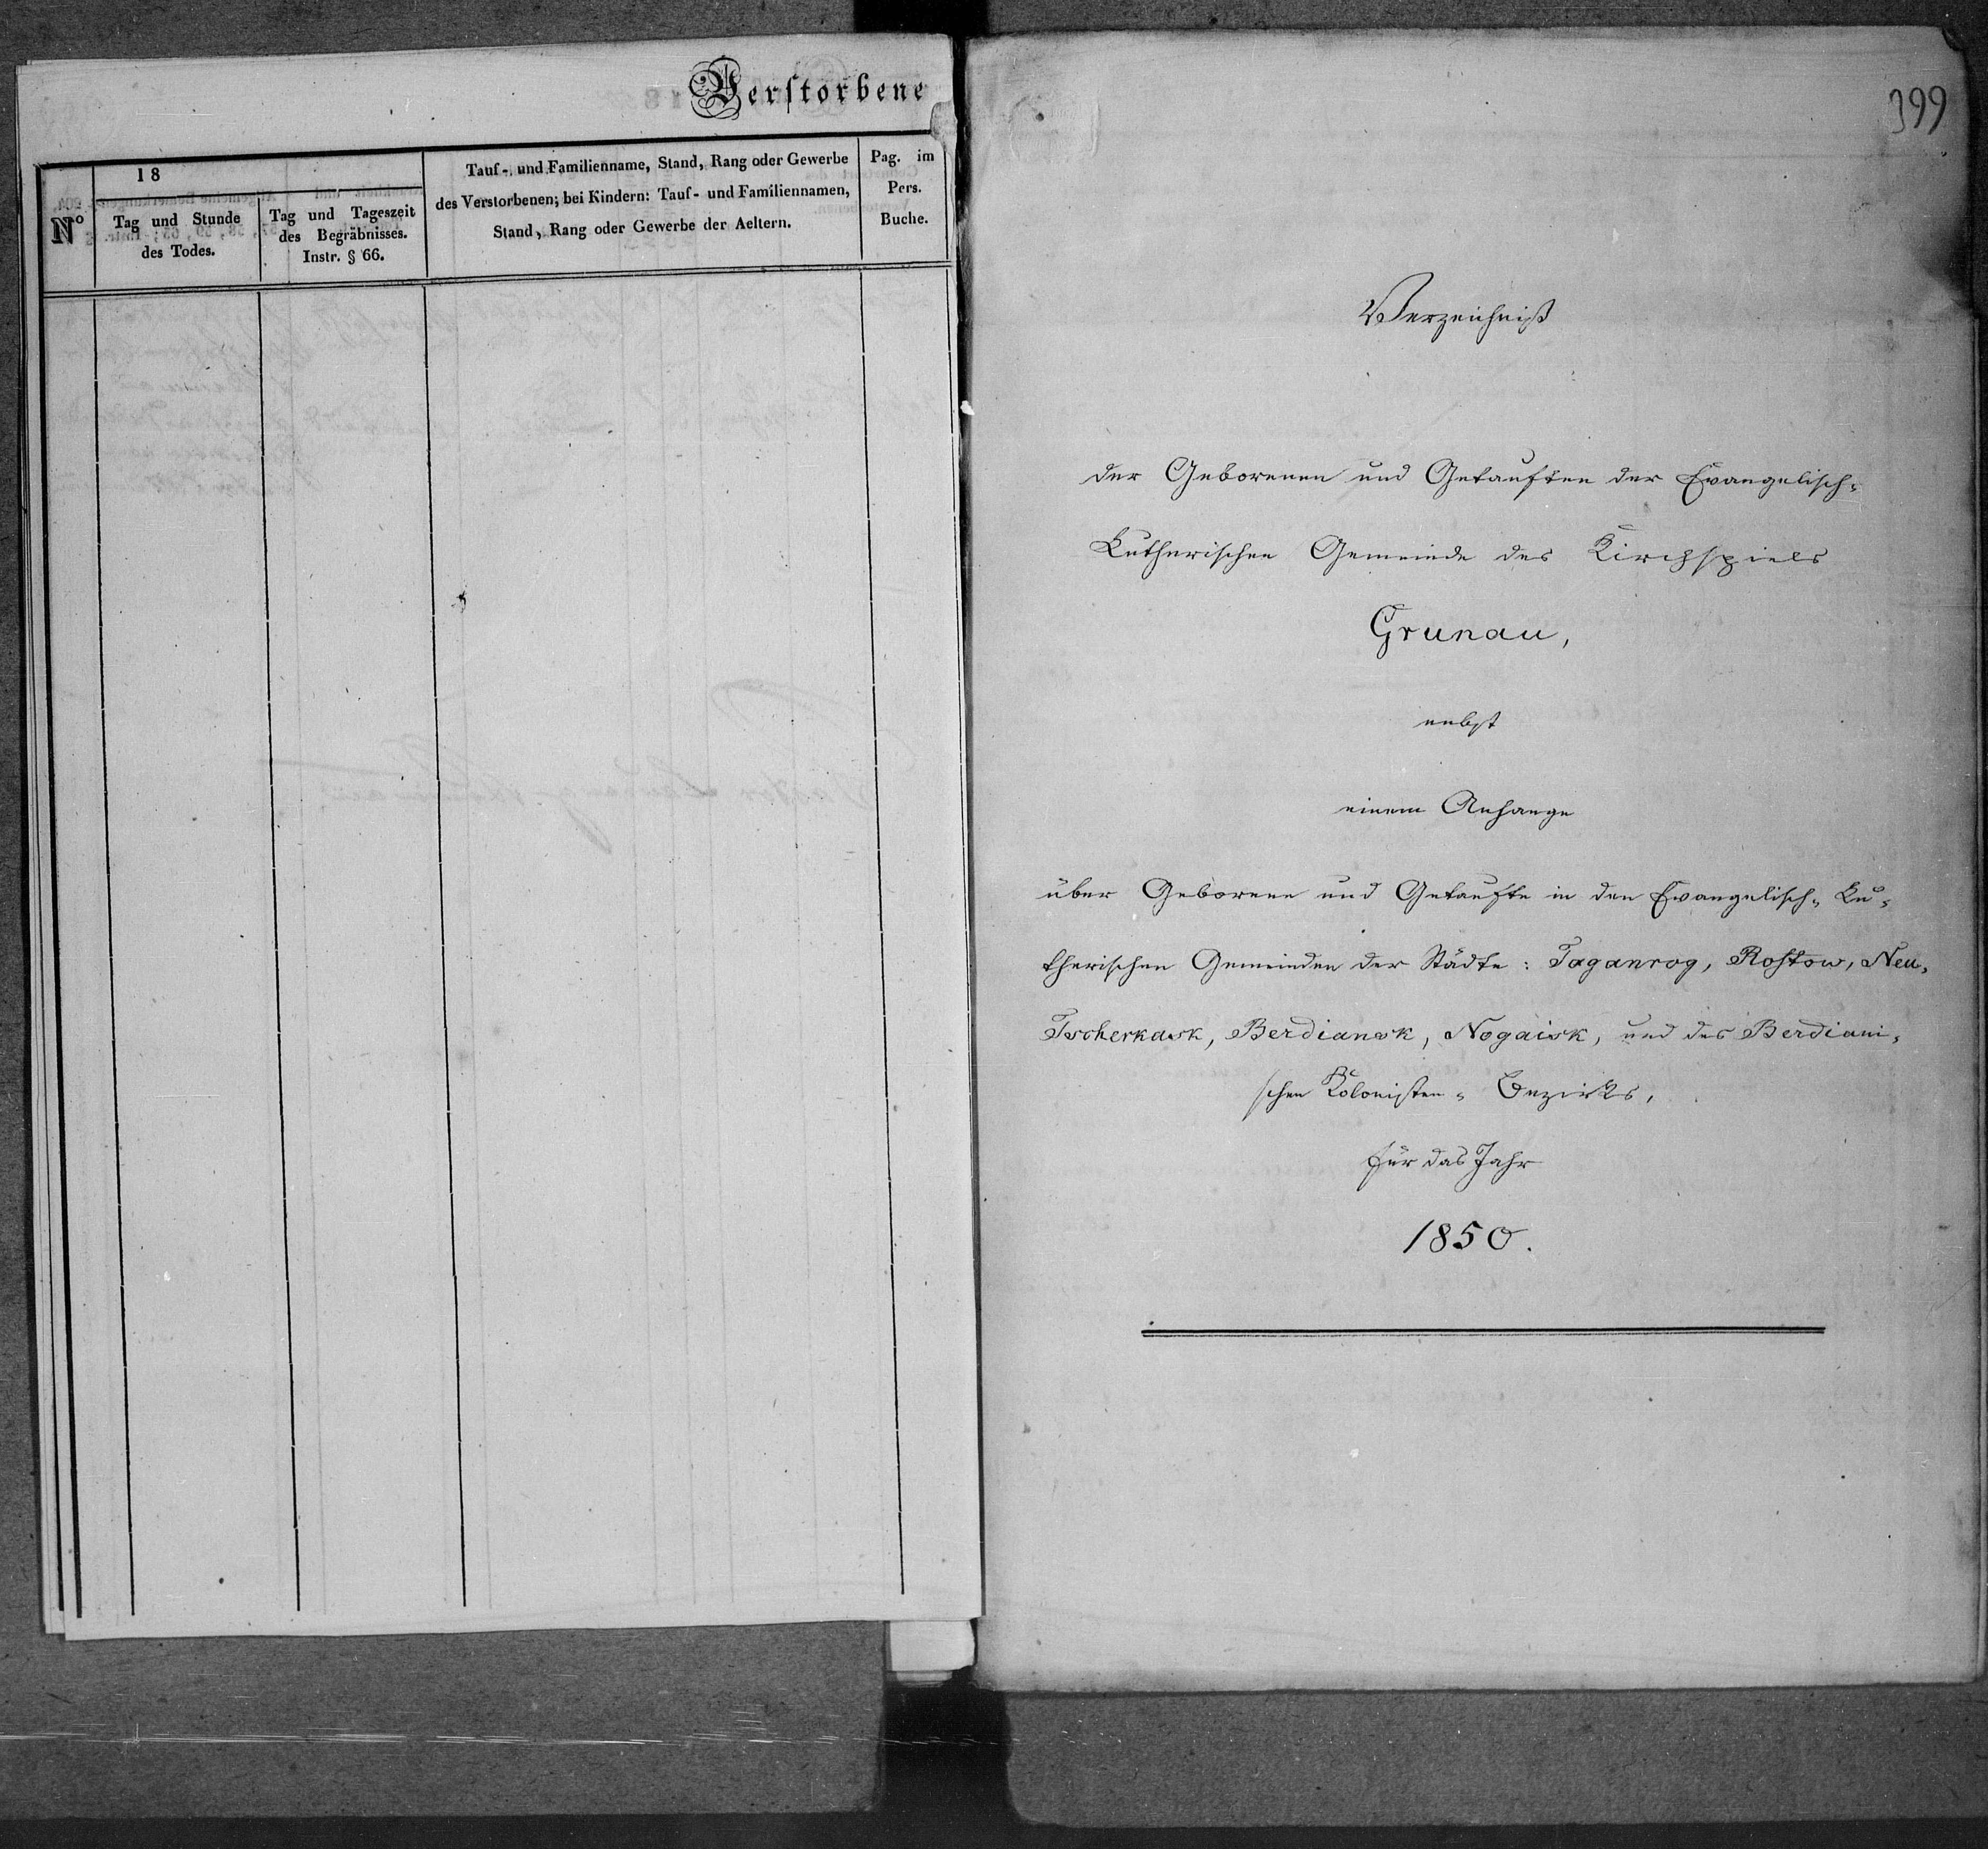 Verstorbene
18
N°
Tag und Stunde
des Todes.
Tag und Tageszeit
des Begräbnisses.
Instr. § 66.
Tauf- und Familienname, Stand, Rang oder Gewerbe
des Verstorbenen; bei Kindern: Tauf- und Familiennamen,
Stand, Rang oder Gewerbe der Aeltern.
Pag. im
Pers.
Buche.
399
Verzeichniß
der Geborenen und Getauften der Evangelisch-
Lutherischen Gemeinde des Kirchspiels
Grunau,
nebst
einem Anhange
über Geborene und Getaufte in den Evangelisch-Lu-
therischen Gemeinden der Städte: Taganrog, Rostow, Neu-
Tscherkask, Berdiansk, Nogaisk, und des Berdiani-
schen Kolonisten-Bezirks,
für das Jahr
1850.